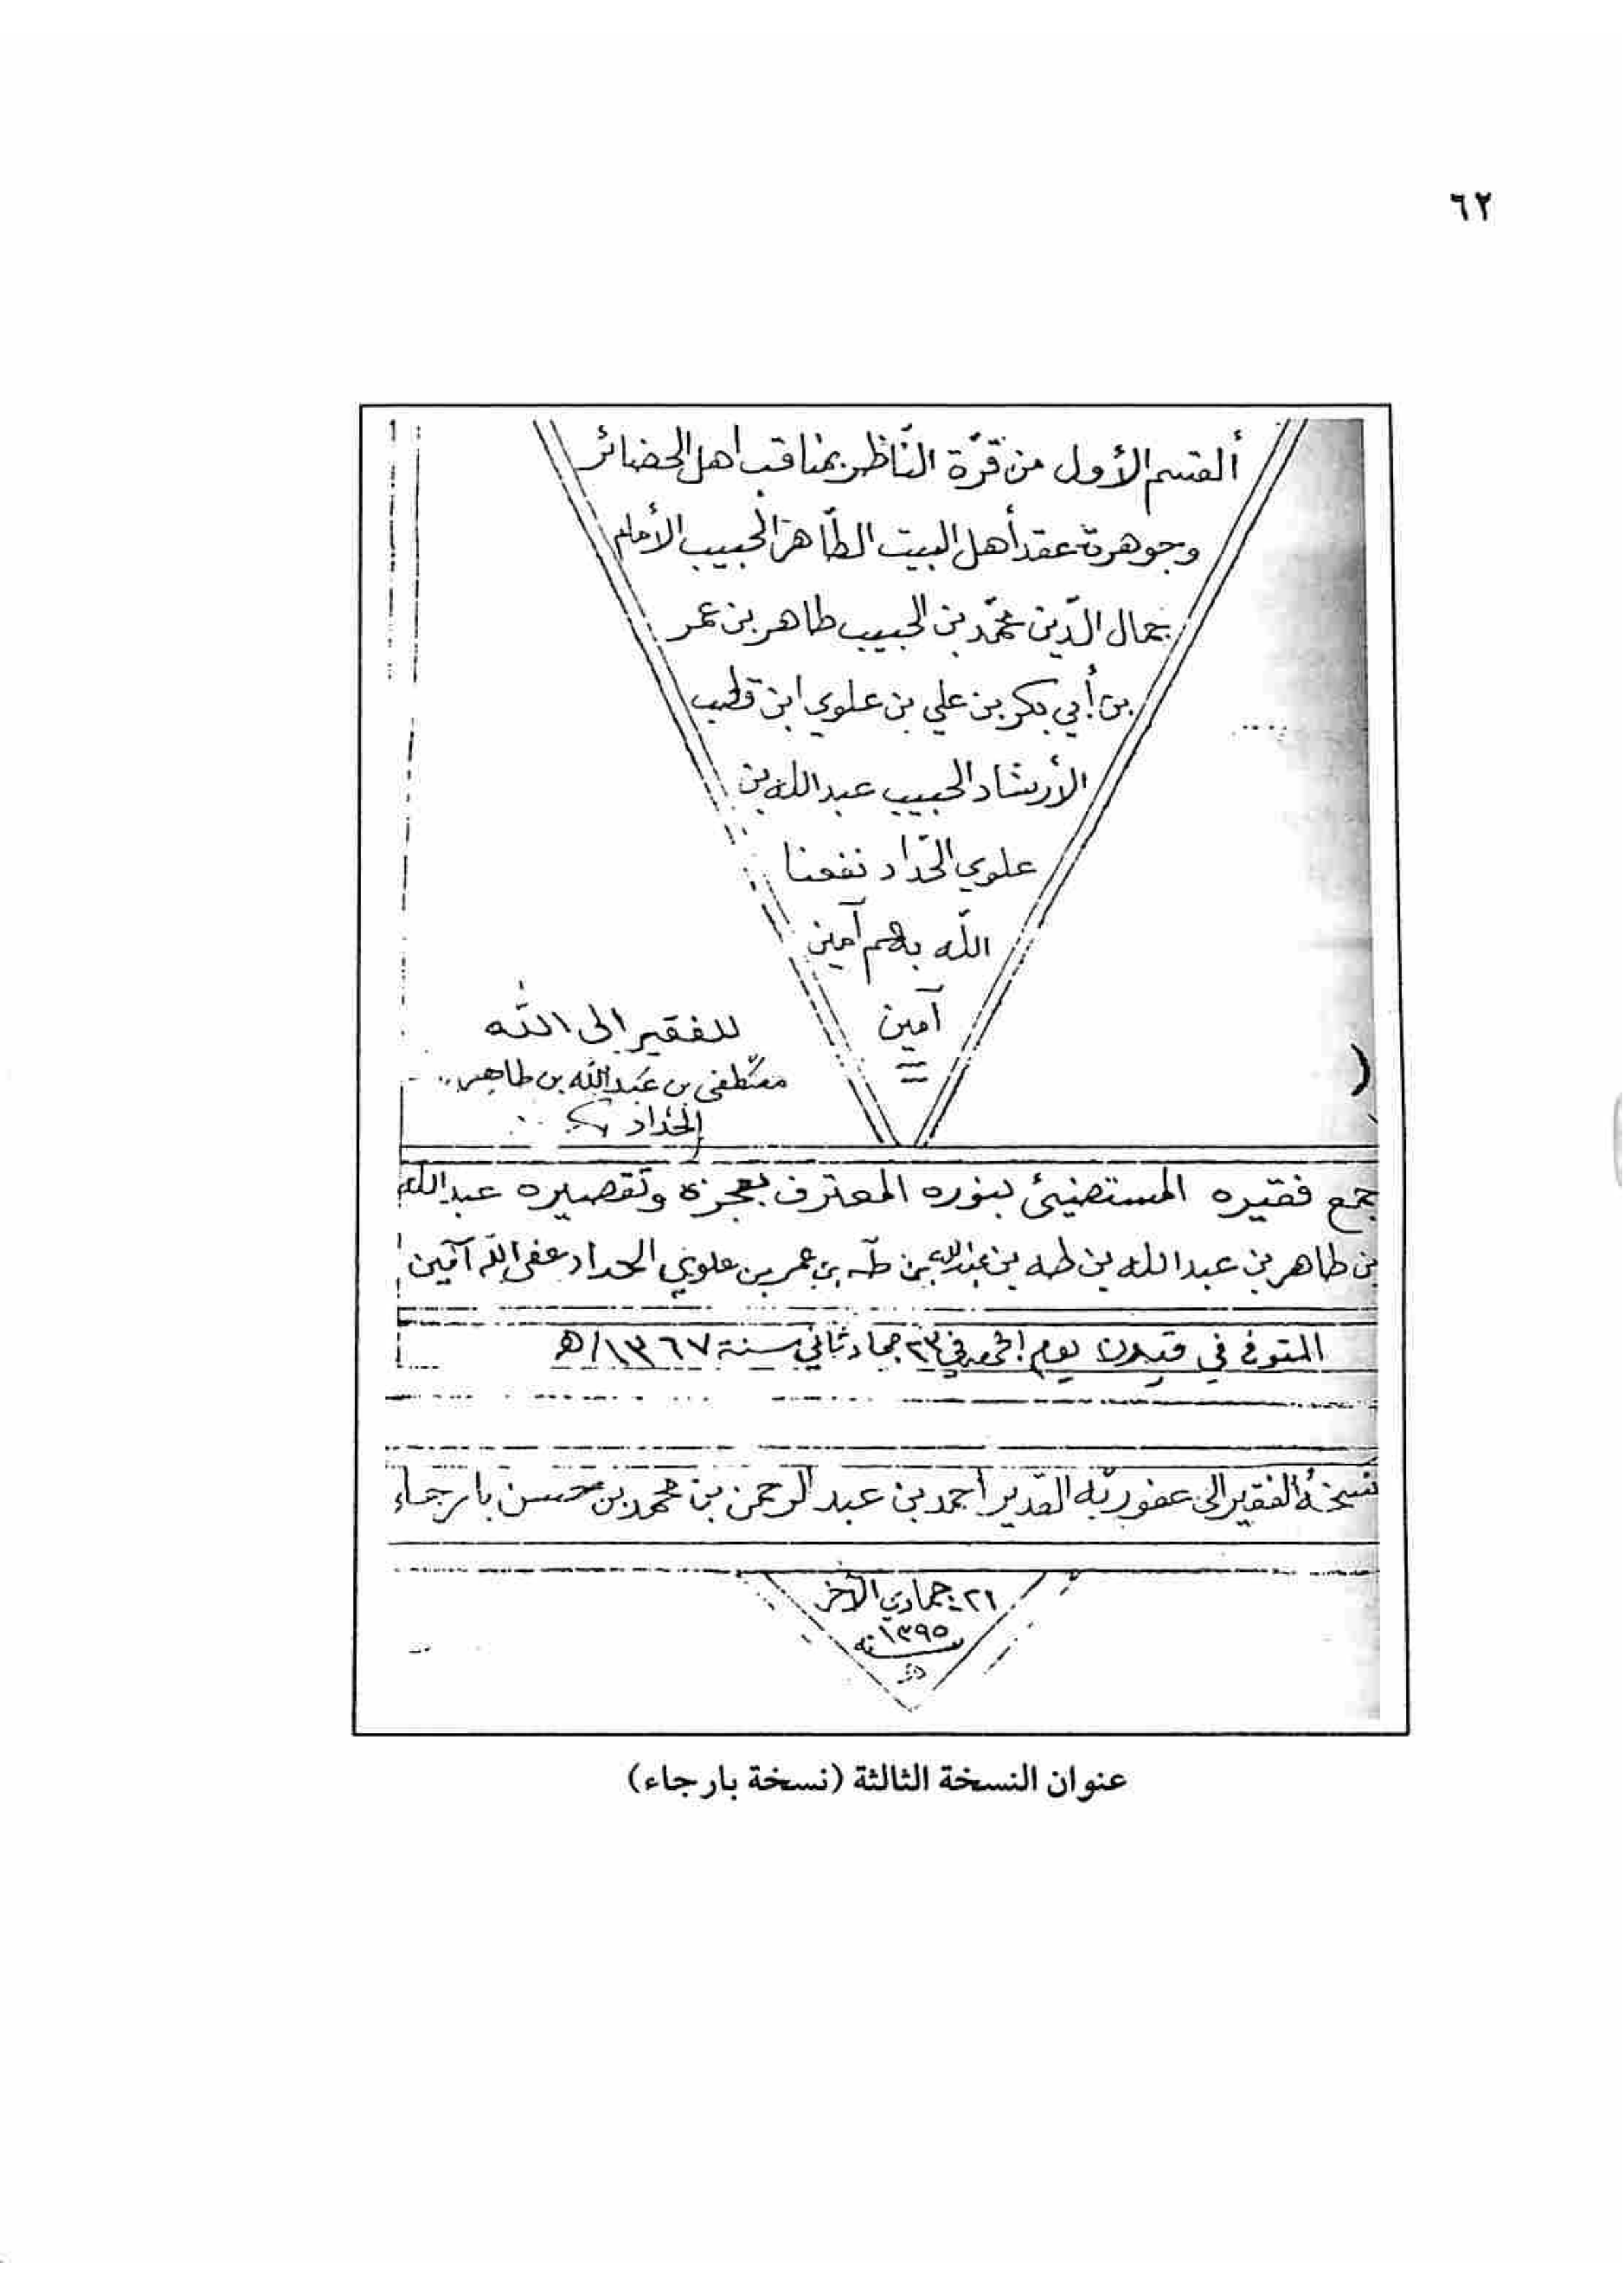 ٦٢
ألقسم الأول من قرّة النّاظر بمناقب اهل الحضائر
وجوهرة عقد أهل البيت الطّاهر الحبيب الأمام
جمال الدّين محمّد بن الحبيب طاهر بن عمر
بن أبي بكر بن علي بن علوي ابن قطب
الأرشاد الحبيب عبد الله بن
علوي الحّداد نفعنا
اللّه بهم آمين
آمين
للفقير إلى الله
مصطفى بن عبد الله بن طاهر
الحداد
جمع فقيره المستضيئ بنوره المعترف بعجزه وتقصيره عبد الله
بن طاهر بن عبد الله بن طه بن عبد الله بن طّه بن عمر بن علوي الحداد عفى اللّه آمين
المتوفى في قيدون يوم الجمعة في ٢٣ جماد ثاني سنة ١٣٦٧/ه
نسخهُ الفقير الى عفو ربّه القدير أحمد بن عبد الرحمن بن محمد بن حسن بارجاء
٢١ جمادي الآخر
سنه ١٣٩٥
عنوان النسخة الثالثة (نسخة بارجاء)